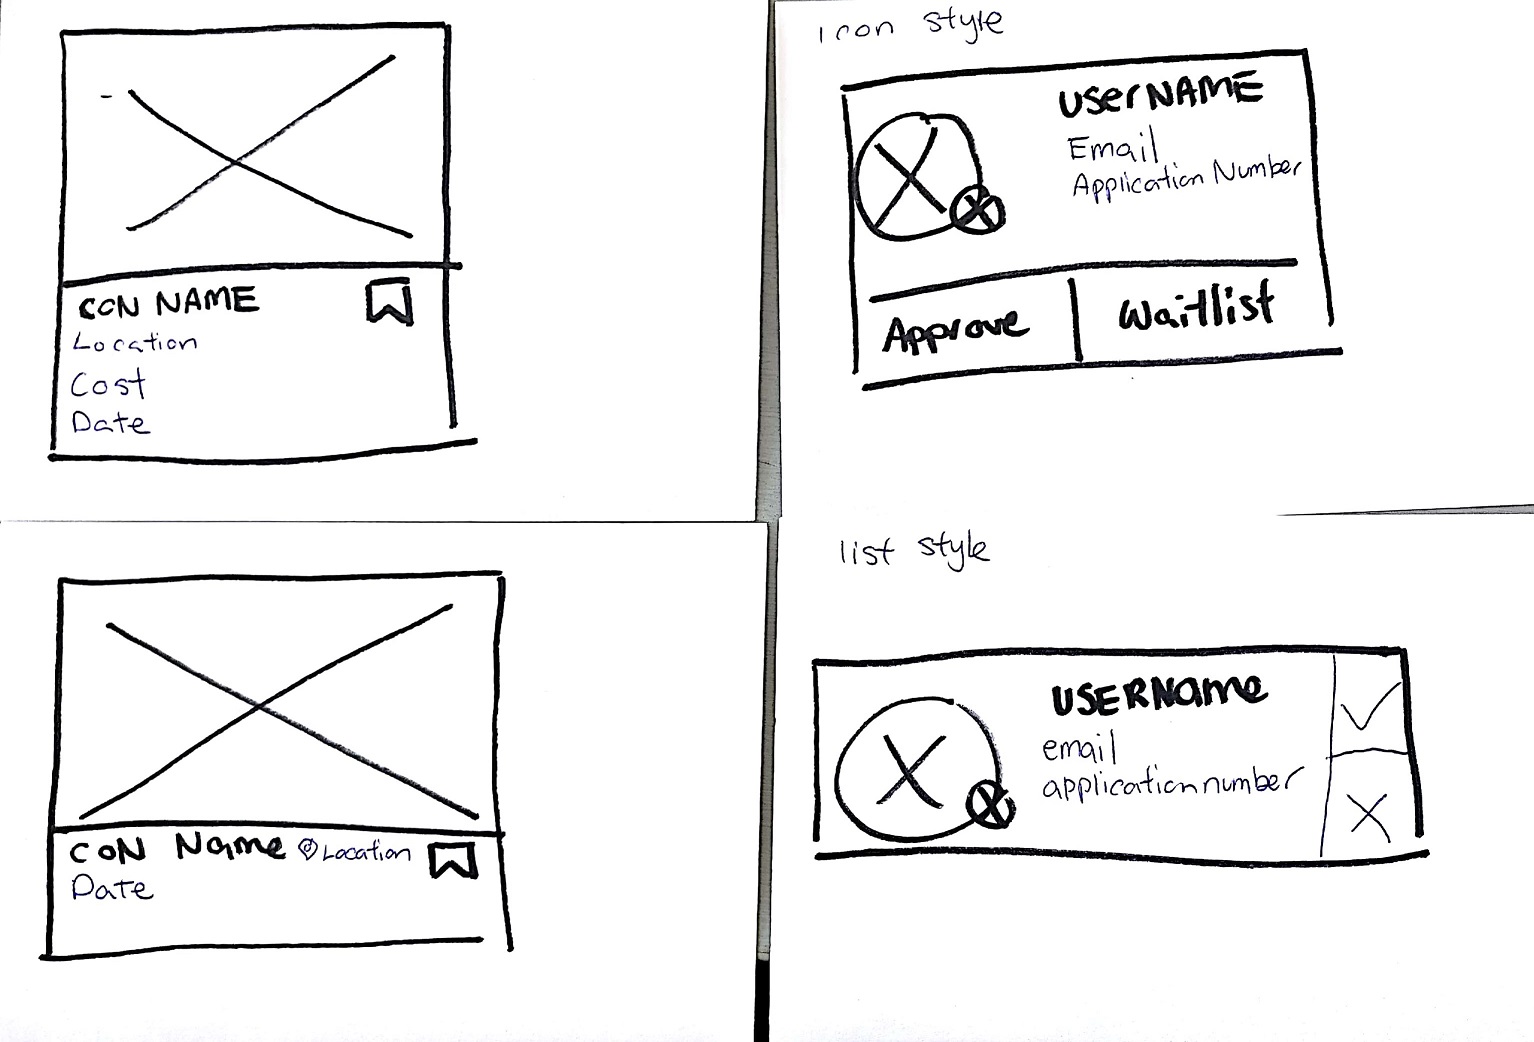 CON NAME
Location
Cost
Date
icon style
UserNAME
Email
Application Number
Approve
Waitlist
CON Name Location
Date
list style
USERName
email
application number